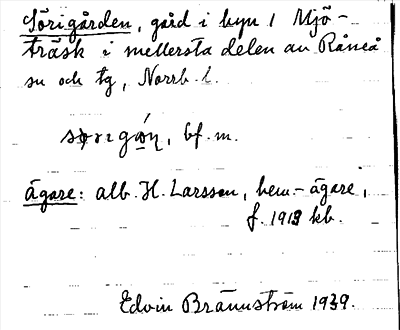 Sörigården, gård i byn 1 Mjö-
träsk i mellersta delen av Råneå
sn och tg, Norrb. l.
bf. m.
ägare: alb. H. Larsson, hem.-ägare,
f. 1913 kb.
Edvin Brännström 1939.